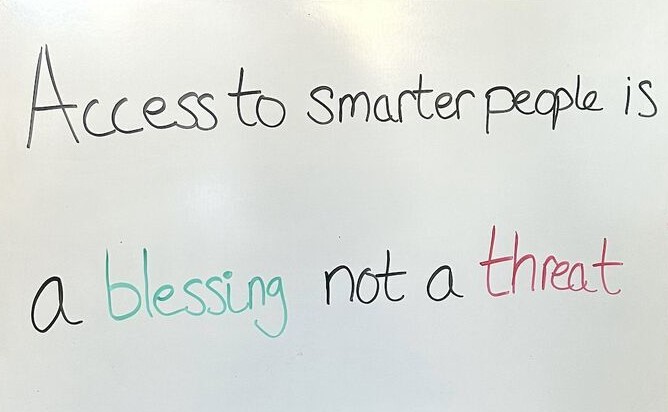 Access to smarter people is
a blessing not a threat